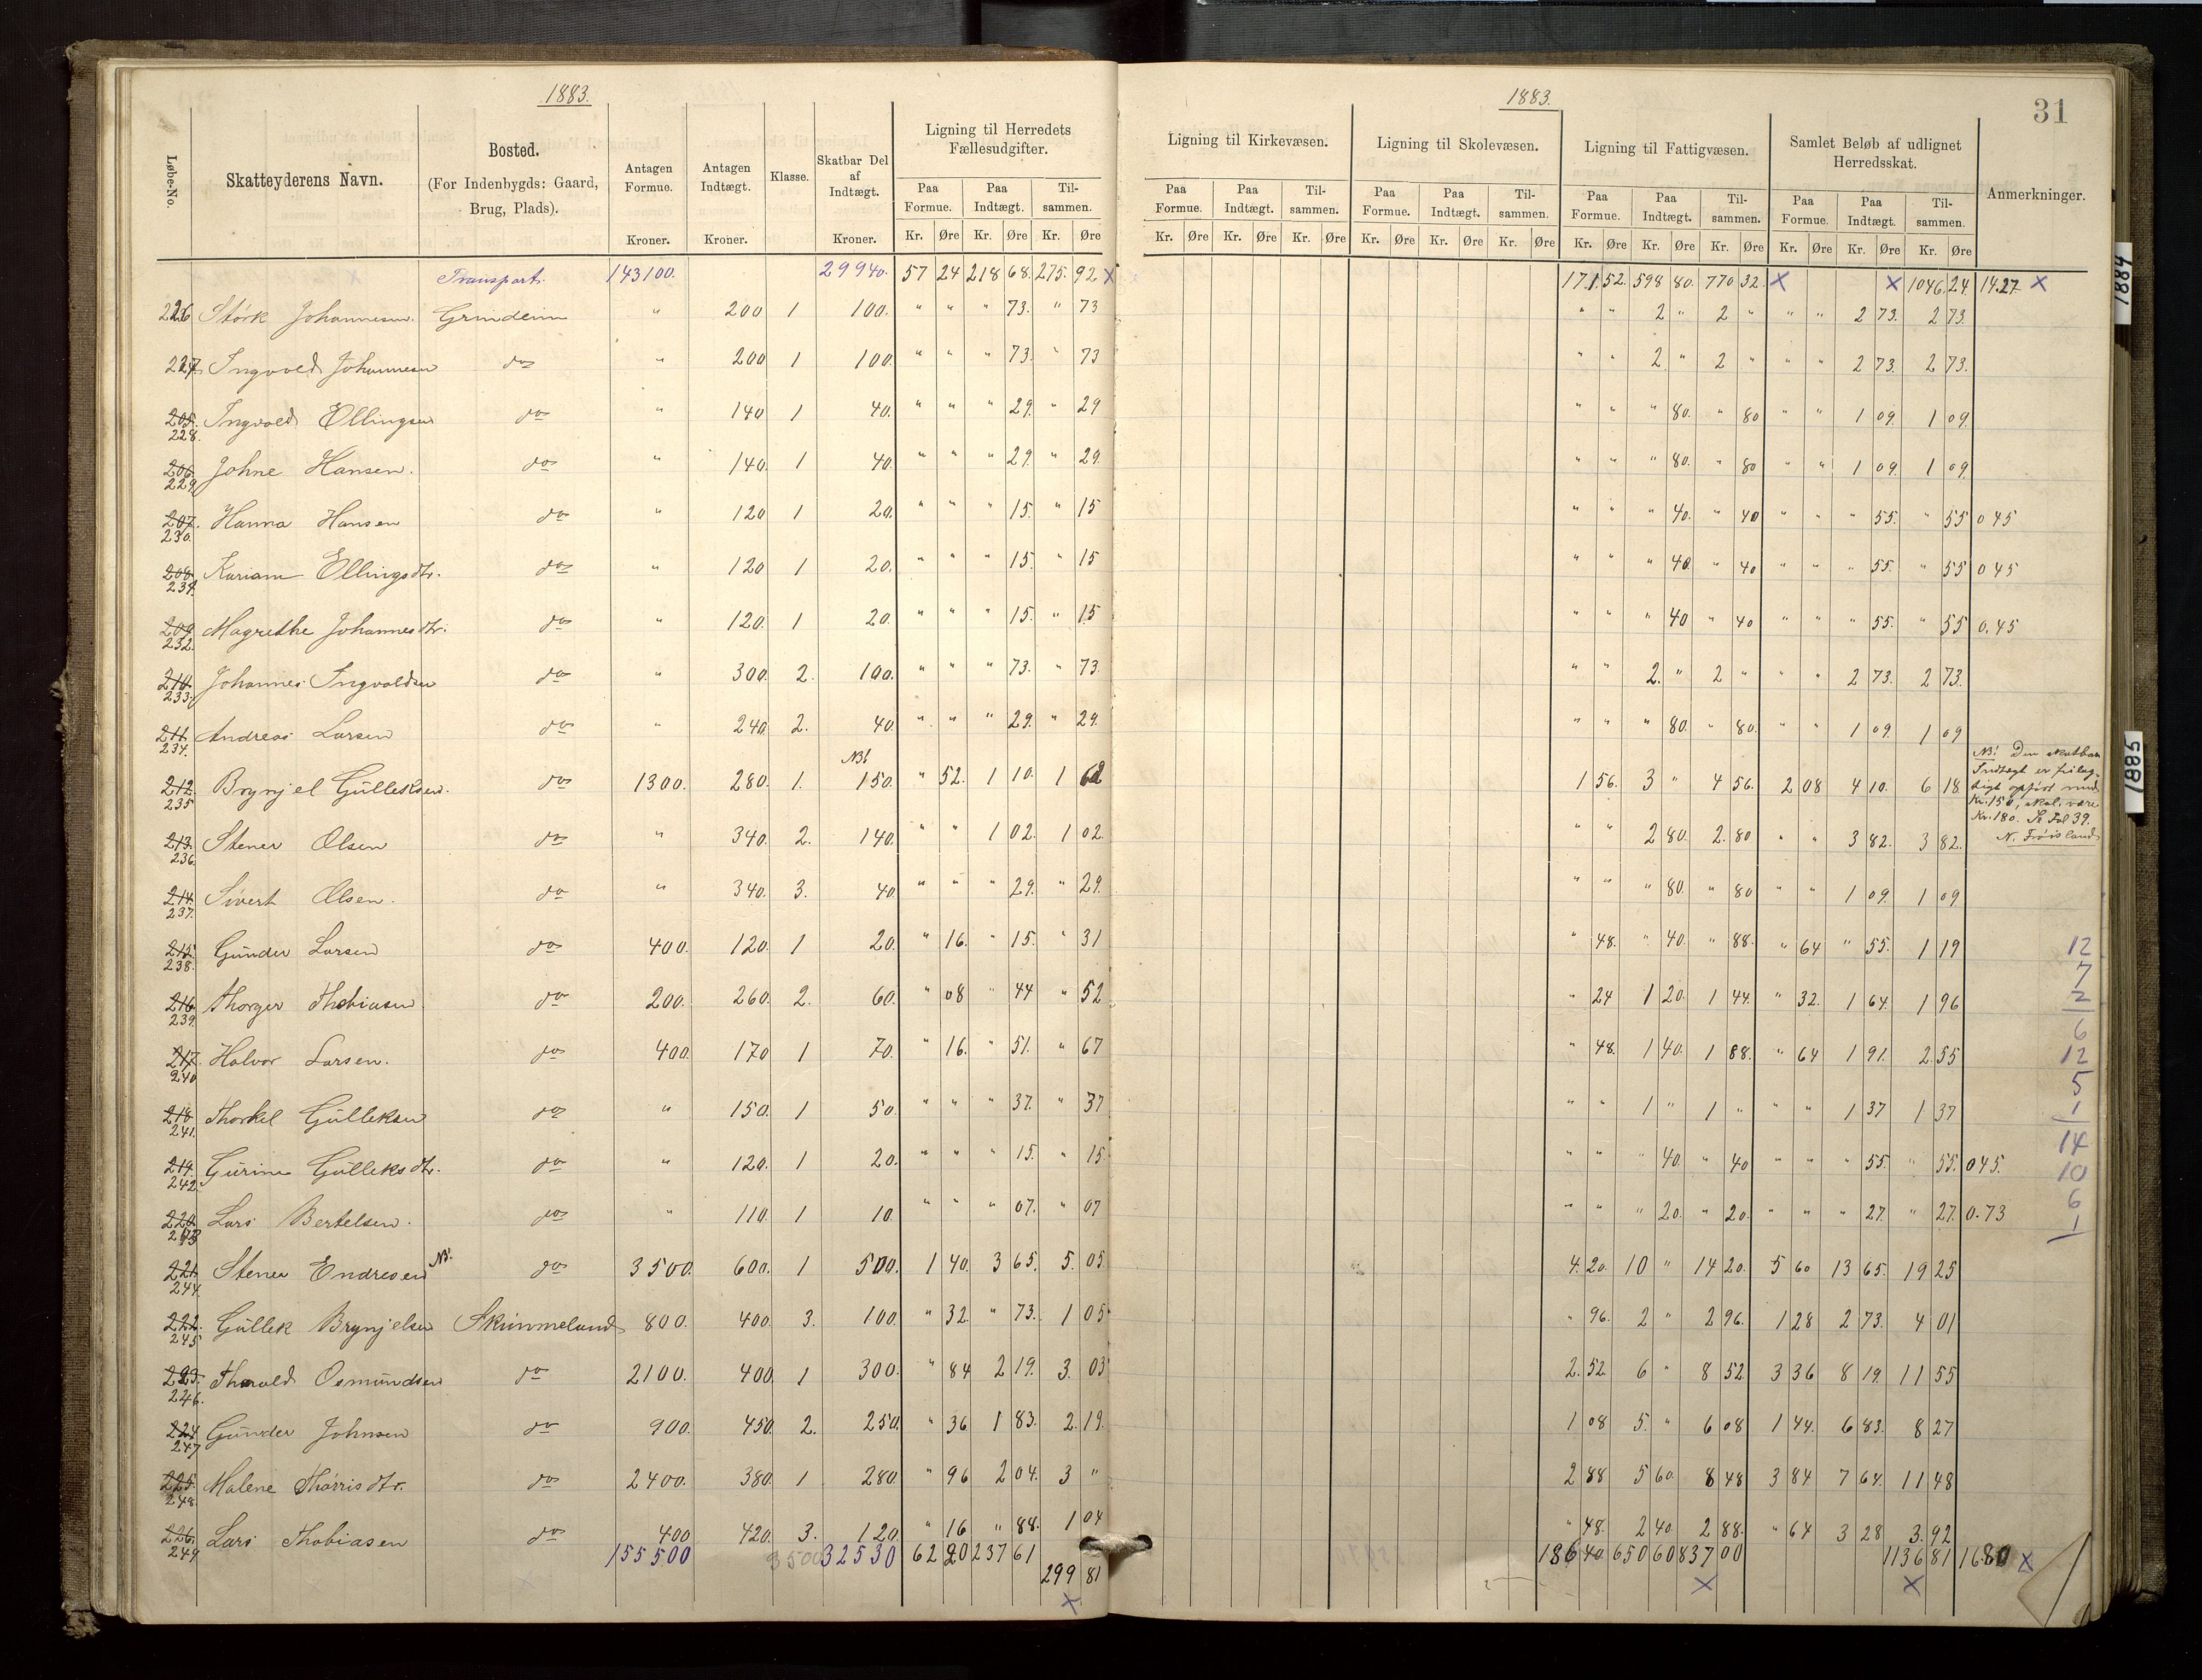 1883.
1883.
31
Løbe-No.
Skatteyderens Navn.
Bosted.
(For Indenbygds: Gaard,
Brug, Plads).
Antagen
Formue.
Kroner.
Antagen
Indtægt.
Kroner.
Klasse.
Skatbar Del
af
Indtægt.
Kroner.
Ligning til Herredets
Fællesudgifter.
Paa Formue. Paa Indtægt. Til- sammen.
Kr. Øre Kr. Øre Kr. Øre
Ligning til Kirkevæsen.
Paa Formue. Paa Indtægt. Til- sammen.
Kr. Øre Kr. Øre Kr. Øre
Ligning til Skolevæsen.
Paa Formue. Paa Indtægt. Til- sammen.
Kr. Øre Kr. Øre Kr. Øre
Ligning til Fattigvæsen.
Paa Formue. Paa Indtægt. Til- sammen.
Kr. Øre Kr. Øre Kr. Øre
Samlet Beløb af udlignet
Herredsskat.
Paa Formue. Paa Indtægt. Til- sammen.
Kr. Øre Kr. Øre Kr. Øre
Anmerkninger.
Transport. 143100. 29940. 57 24 218 68. 275. 92 X 171. 52. 598 80. 770 32. X X 1046. 24. 14.27 X
226 Stórk Johannesen. Grindeim " 200 1 100. " " " 73. " 73 " " 2 " 2 " " " 2 73. 2 73.
227. Ingvold Johannesen do " 200 1 100. " " " 73. " 73 " " 2 " 2 " " " 2 73. 2 73.
205. 228. Ingvold Ellingsen do " 140 1 40. " " " 29. " 29 " " " 80. " 80 " " 1 09. 1 09.
206. 229. Johne Hansen. do " 140. 1 40. " " " 29. " 29. " " " 80. " 80 " " 1 09. 1 09.
207. 230. Hanna Hansen do " 120 1 20. " " " 15. " 15 " " " 40. " 40 " " " 55. " 55 0 45
208. 231. Kariam Ellingsdtr. do " 120 1 20. " " " 15. " 15 " " " 40. " 40 " " " 55. " 55 0 45
209. 232. Magrethe Johannesdtr. do " 120. 1 20. " " " 15. " 15 " " " 40 " 40 " " " 55. " 55 0.45
210. 233. Johannes Ingvoldsen do " 300. 2. 100. " " " 73. " 73. " " 2. " 2 " " " 2 73. 2 73.
211. 234. Andreas Larsen do " 240. 2. 40. " " " 29. " 29. " " " 80. " 80. " " 1 09. 1 09
212. 235 Brynjel Gülleksen. do 1300. 280. 1. NB! 150. " 52. 1 10. 1 62 1 56. 3 " 4 56. 2 08 4 10. 6 18.
NB! Den skatbare
Indtægt er feilag-
tigt opført med
Kr. 150, skal være
Kr. 180. Se Fol 39.
N. Frøisland
213. 236. Stener Olsen do " 340. 2. 140. " " 1 02. 1 02. " " 2 80. 2. 80 " " 3 82. 3 82.
214. 237. Sivert Olsen. do " 340. 3. 40. " " " 29. " 29. " " " 80. " 80 " " 1 09. 1 09
215. 238. Günder Larsen do 400. 120. 1 20. " 16. " 15. " 31 " 48. " 40. " 88. " 64 " 55. 1 19
216. 239. Thorger Thobiasen do 200. 260. 2. 60. " 08 " 44 " 52 " 24 1 20. 1 44. " 32. 1 64. 1 96
217. 240 Halvor Larsen. do 400. 170 1 70. " 16. " 51. " 67 " 48. 1 40. 1 88. " 64 1 91. 2 55
218. 241. Thorkel Gülleksen do " 150. 1 50. " " " 37. " 37 " " 1 " 1 " " " 1 37 1 37
219. 242. Gürine Gülleksdtr. do " 120. 1 20. " " " 15. " 15. " " " 40. " 40 " " " 55. " 55. 0 45.
220. 243 Lars Bertelsen. do " 110. 1 10. " " " 07. " 07 " " " 20. " 20. " " " 27. " 27. 0.73
221. 244. Stener Endresen NB! do 3500. 600. 1 500. 1 40. 3 65. 5. 05 4. 20. 10 " 14 20. 5 60 13 65. 19 25
222. 245 Güllek Brynjelsen Skimmeland 800. 400. 3. 100. " 32. " 73. 1 05 " 96. 2 " 2 96. 1 28 2 73. 4 01
223. 246. Tharald Osmundsen do 2100. 400. 1 300. " 84 2 19. 3. 03 2. 52. 6 " 8 52. 3 36 8 19. 11 55
224 247 Günder Johnsen do 900. 450. 2. 250. " 36 1 83. 2. 19. 1 08 5. " 6 08 1 44. 6 83. 8 27
225. 248 Malene Thorrisdtr. do 2400. 380. 1 280. " 96 2 04. 3 " 2 88 5 60. 8 48 3 84 7 64. 11 48
226. 249 Lars Thobiasen do 400 420. 3. 120. " 16 " 88. 1 04 " 48. 2 40. 2 88. " 64 3 28 3. 92
155500 3500 32530 62 20 237 61 299 81 X 186 40 650 60 837 00 X 1136 81 X 16.80 X
12
7
2
6
12
5
1
14
10
6
1
1884
1885